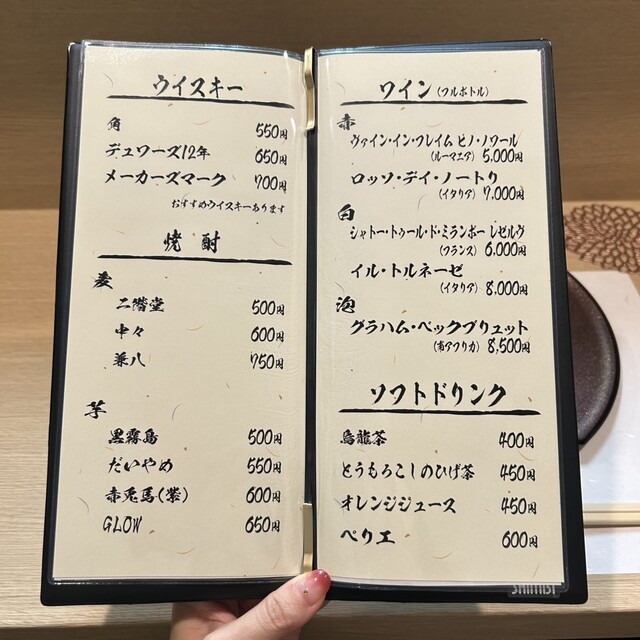 ウイスキー
角 550円
デュワーズ12年 650円
メーカーズマーク 700円
おすすめウイスキーあります
焼酎
麦
二階堂 500円
中々 600円
兼八 750円
芋
黒霧島 500円
だいやめ 550円
赤兎馬(紫) 600円
GLOW 650円
ワイン(フルボトル)
赤
ヴァイン・イン・フレイム ピノ・ノワール
(ルーマニア) 5,000円
ロッソ・デイ・ノートリ
(イタリア) 7,000円
白
シャトー・トゥール・ド・ミランボー レゼルヴ
(フランス) 6,000円
イル・トルネーゼ
(イタリア) 8,000円
泡
グラハム・ベックブリュット
(南アフリカ) 8,500円
ソフトドリンク
烏龍茶 400円
とうもろこしのひげ茶 450円
オレンジジュース 450円
ペリエ 600円
SHIMBI